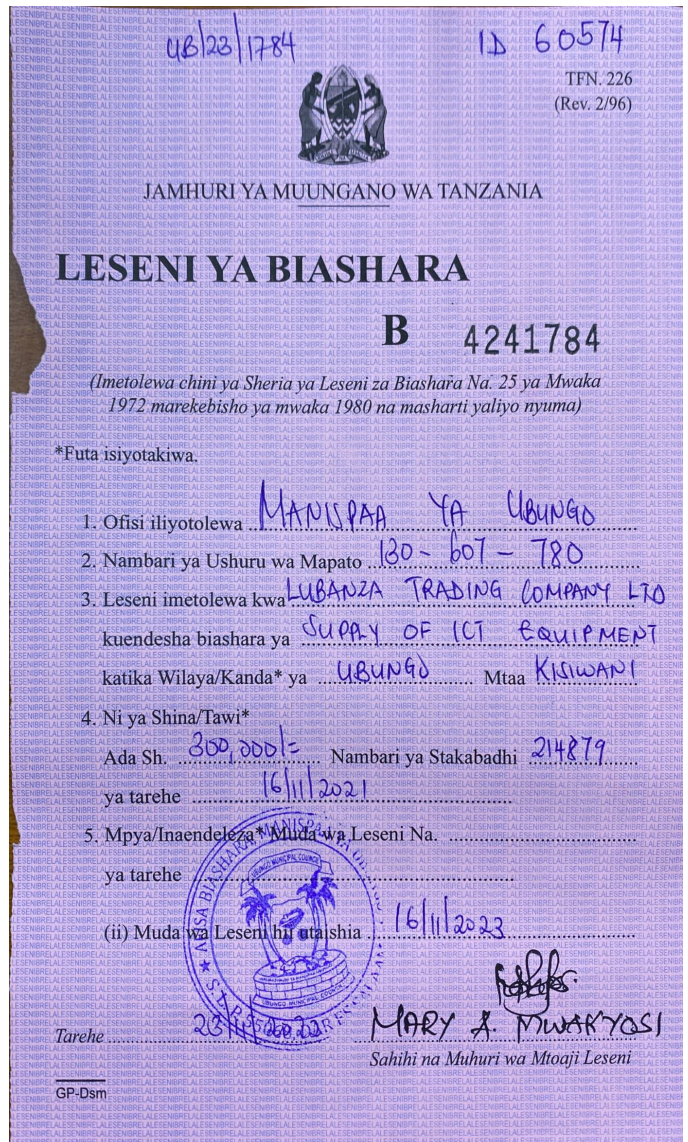 UB/23/1784 ID 60574
TFN. 226
(Rev. 2/96)
JAMHURI YA MUUNGANO WA TANZANIA
LESENI YA BIASHARA
B 4241784
(Imetolewa chini ya Sheria ya Leseni za Biashara Na. 25 ya Mwaka
1972 marekebisho ya mwaka 1980 na masharti yaliyo nyuma)
*Futa isiyotakiwa.
1. Ofisi iliyotolewa MANISPAA YA UBUNGO
2. Nambari ya Ushuru wa Mapato 130-607-780
3. Leseni imetolewa kwa LUBANZA TRADING COMPANY LTD
kuendesha biashara ya SUPPLY OF ICT EQUIPMENT
katika Wilaya/Kanda* ya UBUNGO Mtaa KISIWANI
4. Ni ya Shina/Tawi*
Ada Sh. 300,000/= Nambari ya Stakabadhi 214879
ya tarehe 16/11/2021
5. Mpya/Inaendeleza* Muda wa Leseni Na.
ya tarehe
UBUNGO MUNICIPAL COUNCIL
(ii) Muda wa Leseni hii utaishia 16/11/2023
UBUNGO MUNICIPAL COUNCIL
MARY A. MWAKYOSI
Tarehe
Sahihi na Muhuri wa Mtoaji Leseni
GP-Dsm